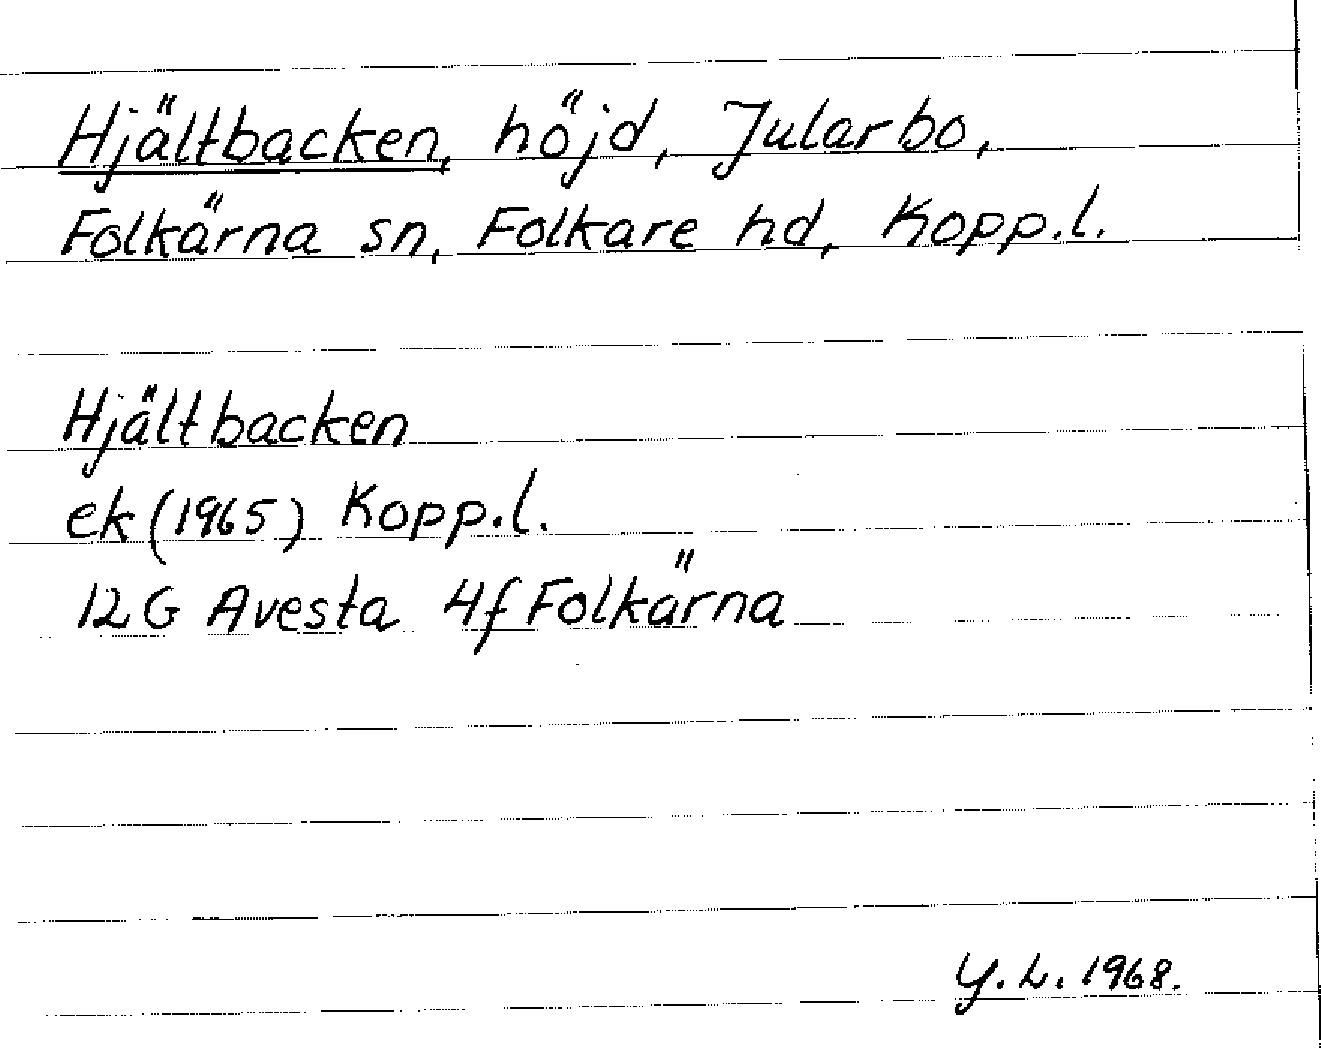 Hjältbacken, höjd, Jularbo,
Folkärna sn, Folkare hd, Kopp.l.
Hjältbacken
ek (1965) Kopp.l.
12G Avesta 4f Folkärna
Y.L. 1968.